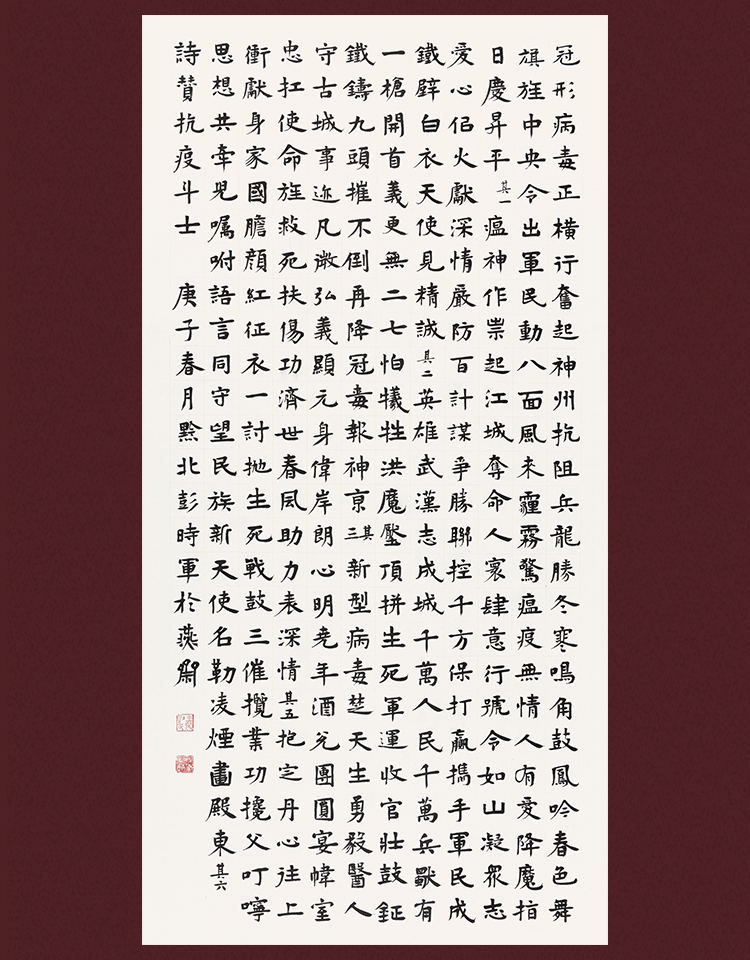 冠形病毒正橫行奮起神州抗阻兵龍勝冬寒鳴角鼓鳳吟春色舞
旗旌中央令出軍民動八面風來霾霧驚瘟疫無情人有愛降魔指
日慶昇平 其一 瘟神作祟起江城奪命人寰肆意行號令如山凝眾志
愛心侶火獻深情嚴防百計謀爭勝聯控千方保打贏攜手軍民成
鐵壁白衣天使見精誠 其二 英雄武漢志成城千萬人民千萬兵有
一槍開首義更無二七怕犧牲洪魔壓頂拼生死軍運收官壯鼓鉦
鐵鑄九頭摧不倒再降冠毒報神京 其三 新型病毒楚天生勇毅醫人
守古城事迹凡微弘義顯元身偉岸朗心明堯年酒兌團圓宴幃室
忠扛使命旌救死扶傷功濟世春風助力表深情 其五 抱定丹心往上
衝獻身家國膽顏紅征衣一討拋生死戰鼓三催攬業功攙父叮嚀
思想共牽兒囑咐語言同守望民族新天使名勒凌煙畫殿東 其六
詩贊抗疫斗士 庚子春月黔北彭時軍於燕闕